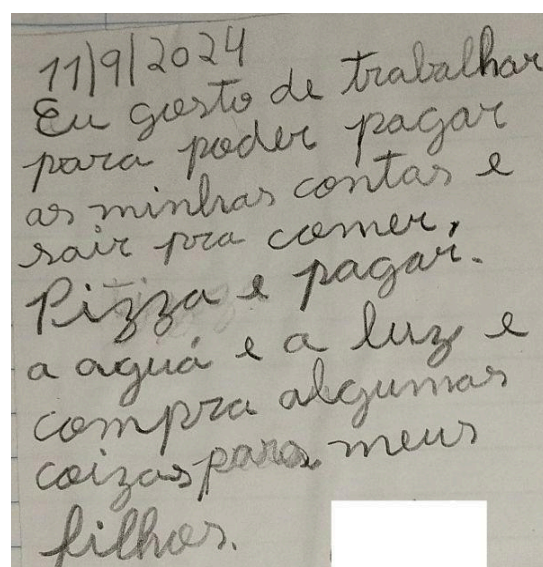 11|9|2024
Eu gosto de trabalhar
para poder pagar
as minhas contas e
sair pra comer,
Pizza e pagar.
a aguá e a luz e
compra algumas
coizas para meus
filhos.